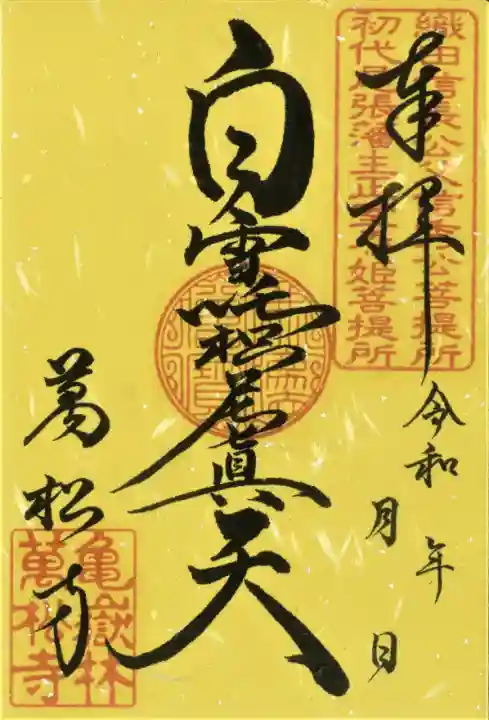 織田信長公父信秀公菩提所
初代尾張藩主正室春姫菩提所
奉拝
令和 年
月 日
白雪吒枳尼真天
萬松寺
亀嶽林
萬松寺